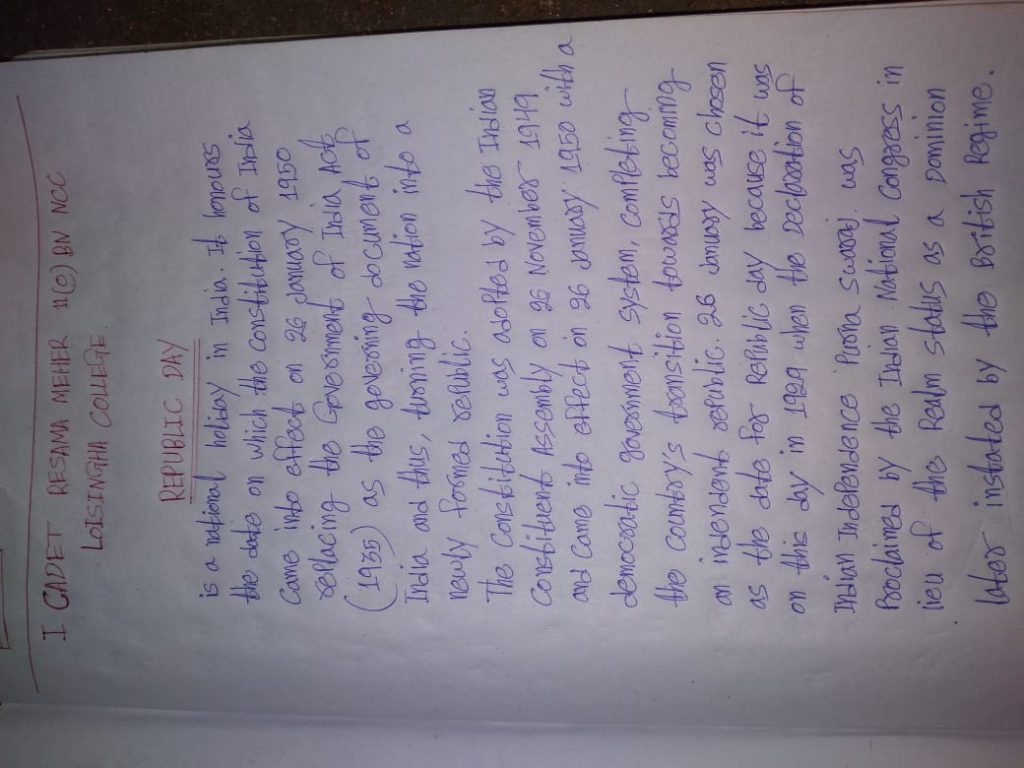 I CADET RESAMA MEHER 11(O) BN NCC
LOISINGHA COLLEGE
REPUBLIC DAY
is a national holiday in India. It honours
the date on which the constitution of India
came into effect on 26 January 1950
replacing the Government of India Act
(1935) as the governing document of
India and thus, turning the nation into a
newly formed republic.
The Constitution was adopted by the Indian
Constituent Assembly on 26 November 1949
and came into effect on 26 January 1950 with a
democratic government system, completing
the country's transition towards becoming
an indendent republic. 26 January was chosen
as the date for Republic day because it was
on this day in 1929 when the Declaration of
Indian Independence Purna Swaraj was
Proclaimed by the Indian National Congress in
lieu of the Realm status as a Dominion
later instated by the British Regime.